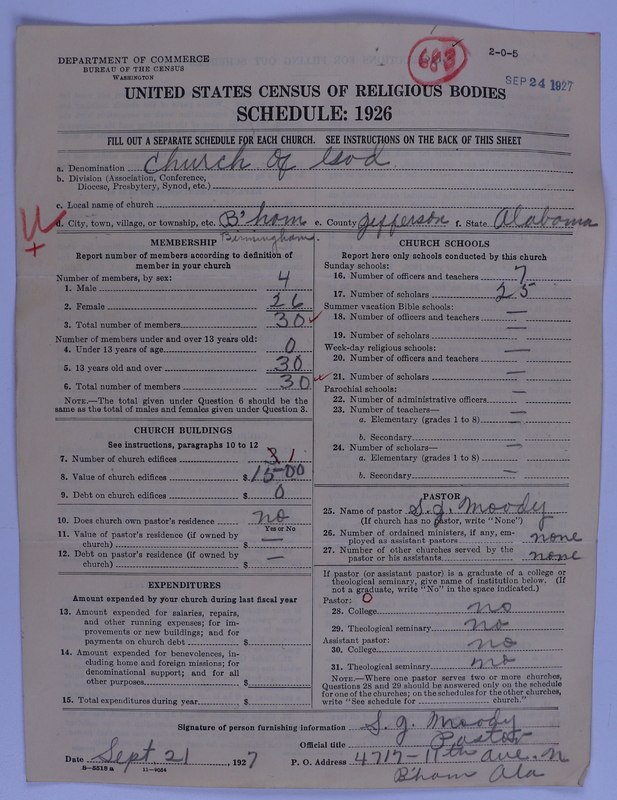 683
2-0-5
SEP 24 1927
DEPARTMENT OF COMMERCE
BUREAU OF THE CENSUS
WASHINGTON
UNITED STATES CENSUS OF RELIGIOUS BODIES
SCHEDULE: 1926
FILL OUT A SEPARATE SCHEDULE FOR EACH CHURCH. SEE INSTRUCTIONS ON THE BACK OF THIS SHEET
a. Denomination Church Of God
b. Division (Association, Conference, Diocese, Presbytery, Synod, etc.)
c. Local name of church
d. City, town, village, or township, etc. B'ham e. County Jefferson f. State Alabama
Birmingham.
MEMBERSHIP
Report number of members according to definition of member in your church
Number of members, by sex:
1. Male 4
2. Female 26
3. Total number of members 30
Number of members under and over 13 years old:
4. Under 13 years of age 0
5. 13 years old and over 30
6. Total number of members 30
NOTE.—The total given under Question 6 should be the same as the total of males and females given under Question 3.
CHURCH BUILDINGS
See instructions, paragraphs 10 to 12
7. Number of church edifices 3 1
8. Value of church edifices $ 1500
9. Debt on church edifices $ 0
10. Does church own pastor's residence no
Yes or No
11. Value of pastor's residence (if owned by church) $ —
12. Debt on pastor's residence (if owned by church) $ —
EXPENDITURES
Amount expended by your church during last fiscal year
13. Amount expended for salaries, repairs, and other running expenses; for improvements or new buildings; and for payments on church debt $
14. Amount expended for benevolences, including home and foreign missions; for denominational support; and for all other purposes $
15. Total expenditures during year $
CHURCH SCHOOLS
Report here only schools conducted by this church
Sunday schools:
16. Number of officers and teachers 7
17. Number of scholars 25
Summer vacation Bible schools:
18. Number of officers and teachers —
19. Number of scholars —
Week-day religious schools:
20. Number of officers and teachers —
21. Number of scholars —
Parochial schools:
22. Number of administrative officers —
23. Number of teachers—
a. Elementary (grades 1 to 8) —
b. Secondary
24. Number of scholars— —
a. Elementary (grades 1 to 8)
b. Secondary —
PASTOR
25. Name of pastor S. J. Moody
(If church has no pastor, write "None")
26. Number of ordained ministers, if any, employed as assistant pastors none
27. Number of other churches served by the pastor or his assistants none
If pastor (or assistant pastor) is a graduate of a college or theological seminary, give name of institution below. (If not a graduate, write "No" in the space indicated.)
Pastor: 0
28. College no
29. Theological seminary no
Assistant pastor:
30. College no
31. Theological seminary no
NOTE.—Where one pastor serves two or more churches, Questions 28 and 29 should be answered only on the schedule for one of the churches; on the schedules for the other churches, write "See schedule for church."
Signature of person furnishing information S. J. Moody
Official title Pastor
Date Sept 21, 1927 P. O. Address 4717-11th ave. N
8-5518 a 11-9054 B'ham Ala